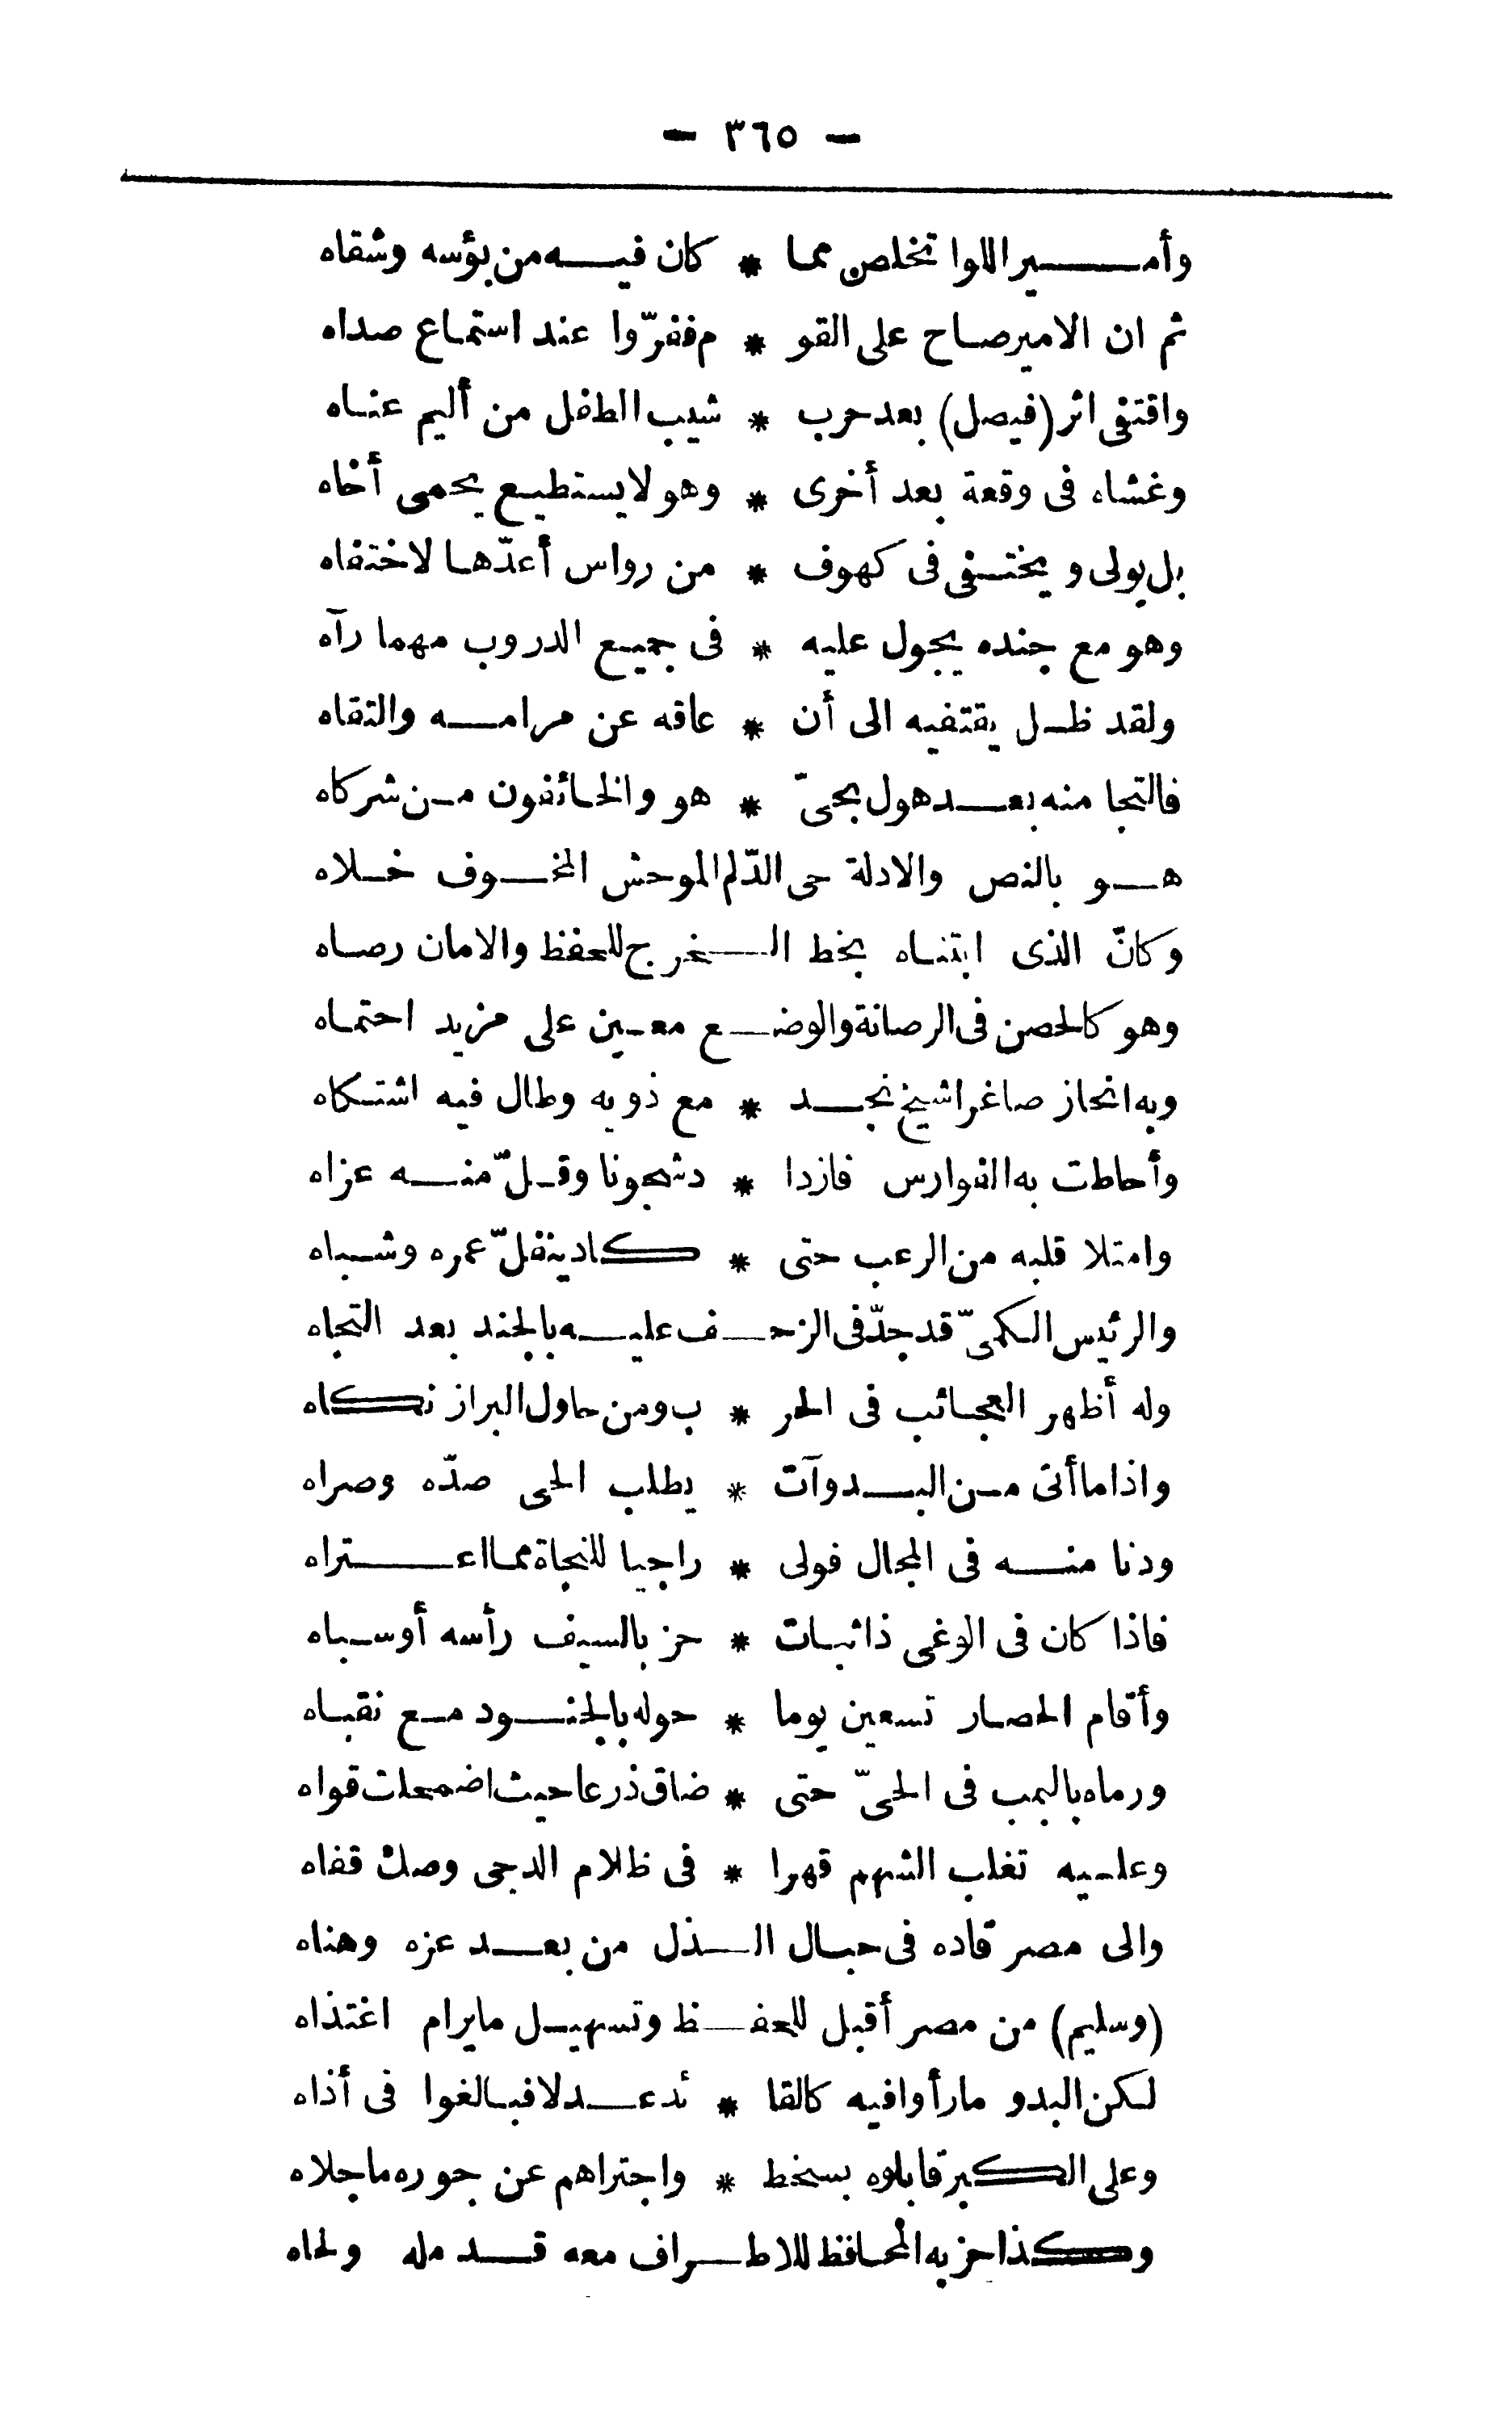 — ٣٦٥ —
وأمير اللوا تخلص مما * كان فيه من بؤسه وشقاه
ثم ان الامير صاح على القو * م ففرّوا عند استماع صداه
واقتفى اثر (فيصل) بعد حرب * شيب الطفل من أليم عناه
وغشاه فى وقعة بعد أخرى * وهو لا يستطيع يحمى أخاه
بل يولى ويختفى فى كهوف * من رواس أعدّها لاختفاه
وهو مع جنده يجول عليه * فى جميع الدروب مهما رآه
ولقد ظل يقتفيه الى أن * عاقه عن مرامه والتقاه
فالتجا منه بعد هول بحىّ * هو والخائفون من شركاه
هو بالنص والادلة حى الدّلم الموحش المخوف خلاه
وكانّ الذى ابتناه بخط الخرج للحفظ والامان رصاه
وهو كالحصن فى الرصانة والوضع معين على مزيد احتماه
وبه انحاز صاغرا شيخ نجد * مع ذويه وطال فيه اشتكاه
وأحاطت به الفوارس فازدا * د شجونا وقلّ منه عزاه
وامتلا قلبه من الرعب حتى * كاد ينفلّ عمره وشباه
والرئيس الكمىّ قد جدّ فى الزحف عليه بالجند بعد التجاه
وله أظهر العجائب فى الحر * ب ومن حاول البراز نكاه
واذا ما أتى من البدو آت * يطلب الحى صدّه وصراه
ودنا منه فى المجال فولى * راجيا للنجاة مما اعتراه
فاذا كان فى الوغى ذا ثبات * حز بالسيف رأسه أو سباه
وأقام الحصار تسعين يوما * حوله بالجنود مع نقباه
ورماه بالبمب فى الحىّ حتى * ضاق ذرعا حيث اضمحلت قواه
وعليه تغلب الشهم قهرا * فى ظلام الدجى وصك قفاه
والى مصر قاده فى حبال الذل من بعد عزه وهناه
(وسليم) من مصر أقبل للحفظ وتسهيل مايرام اغتذاه
لكن البدو مارأوا فيه كالقا * ئد عدلا فبالغوا فى أذاه
وعلى الكبر قابلوه بسخط * واجتراهم عن جوره ماجلاه
وكذا حزبه المحافظ للاطراف معه قد مله ولحاه